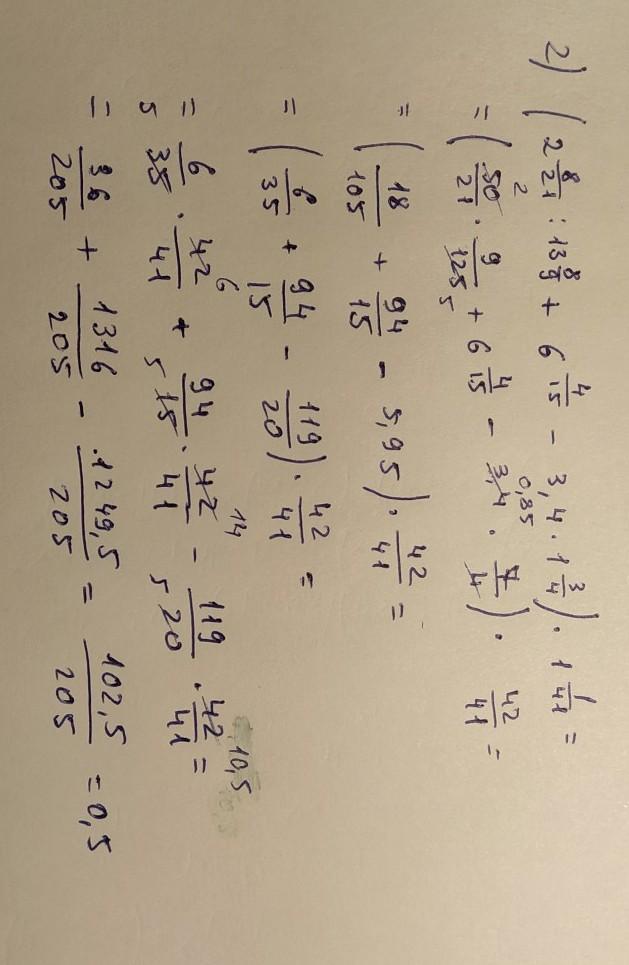 2) (2 8/21 : 13 8/9 + 6 4/15 - 3,4 · 1 3/4) · 1 1/41 =
= (50/21 · 9/125 + 6 4/15 - 3,4 · 7/4) · 42/41 =
2 5 0,85
= (18/105 + 94/15 - 5,95) · 42/41 =
= (6/35 + 94/15 - 119/20) · 42/41 =
= 6/35 · 42/41 + 94/15 · 42/41 - 119/20 · 42/41 =
5 6 5 14 5 10,5
= 36/205 + 1316/205 - 1249,5/205 = 102,5/205 = 0,5